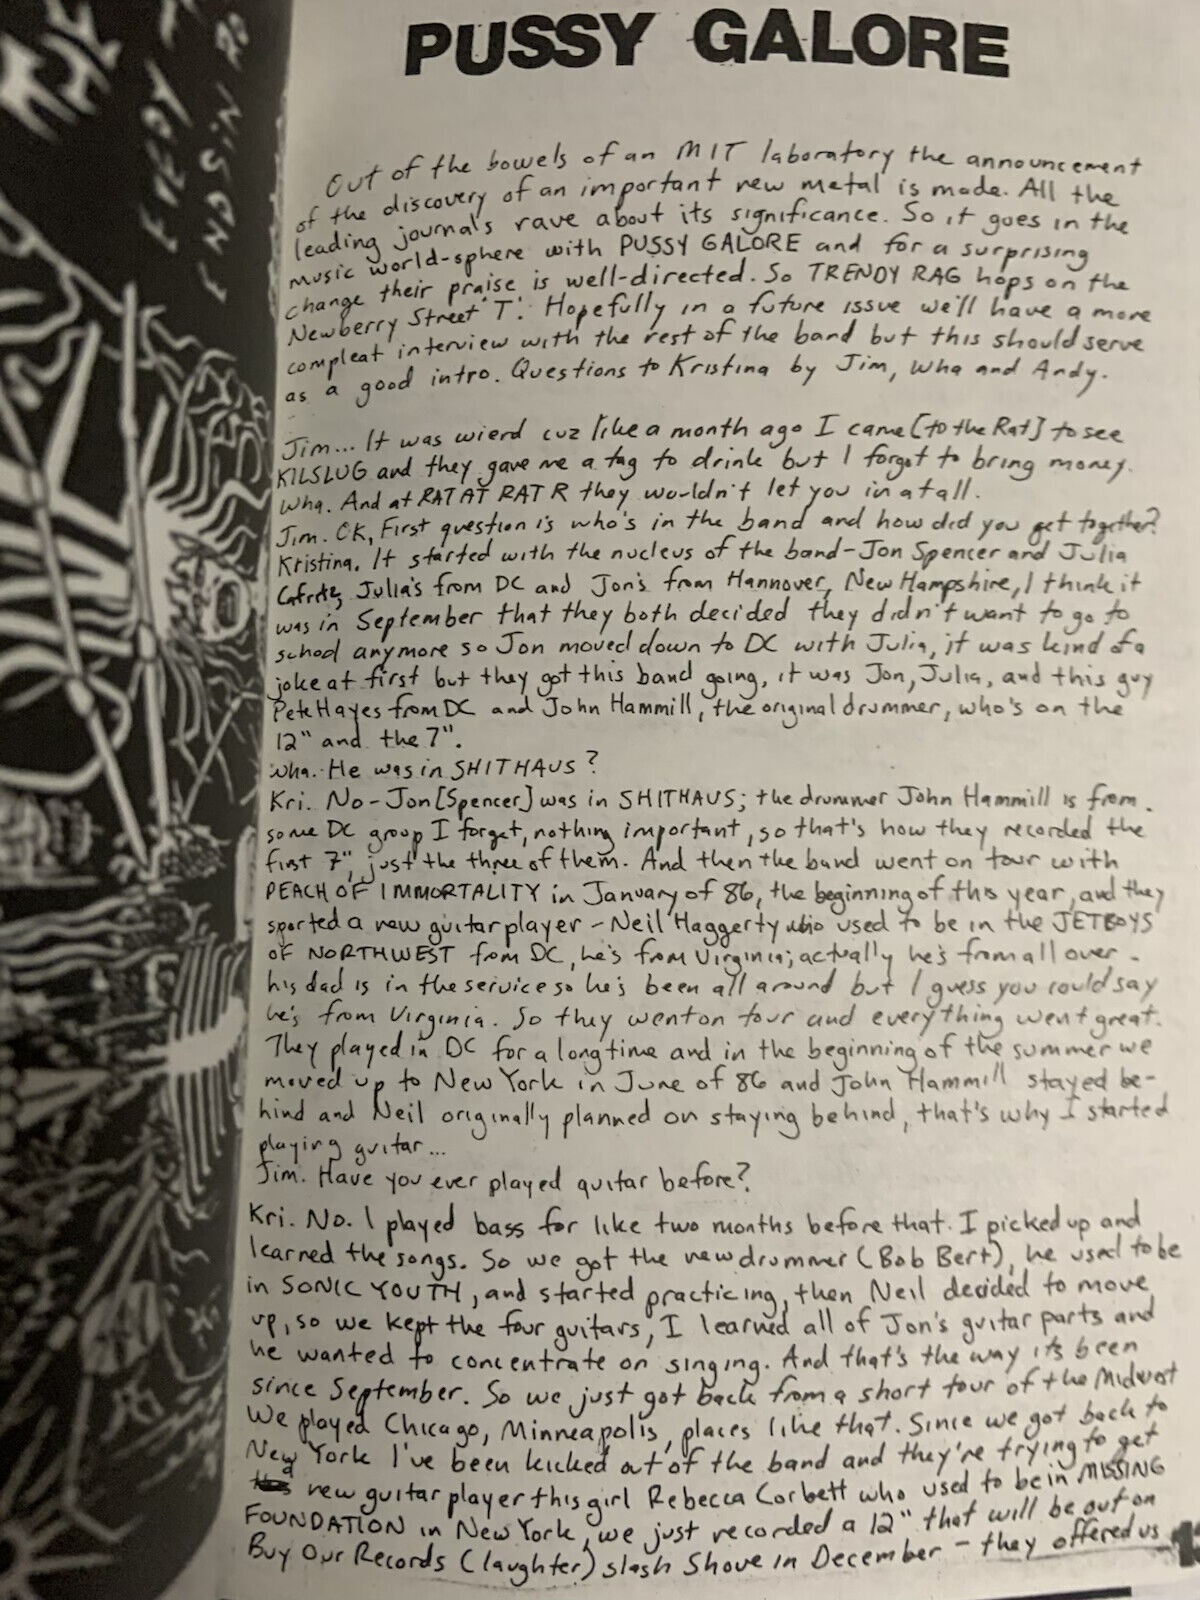 PUSSY GALORE
Out of the bowels of an MIT laboratory the announcement
of the discovery of an important new metal is made. All the
leading journals rave about its significance. So it goes in the
music world-sphere with PUSSY GALORE and for a surprising
change their praise is well-directed. So TRENDY RAG hops on the
Newberry Street 'T'. Hopefully in a future issue we'll have a more
compleat interview with the rest of the band but this should serve
as a good intro. Questions to Kristina by Jim, Wha and Andy.
Jim... It was wierd cuz like a month ago I came [to the Rat] to see
KILSLUG and they gave me a tag to drink but I forgot to bring money.
Wha. And at RAT AT RAT R they wouldn't let you in atall.
Jim. OK, First question is who's in the band and how did you get together?
Kristina. It started with the nucleus of the band-Jon Spencer and Julia
Cafritz, Julia's from DC and Jon's from Hannover, New Hampshire, I think it
was in September that they both decided they didn't want to go to
school anymore so Jon moved down to DC with Julia, it was kind of a
joke at first but they got this band going, it was Jon, Julia, and this guy
Pete Hayes from DC and John Hammill, the original drummer, who's on the
12" and the 7".
Wha. He was in SHITHAUS?
Kri. No-Jon [Spencer] was in SHITHAUS; the drummer John Hammill is from
some DC group I forget, nothing important, so that's how they recorded the
first 7", just the three of them. And then the band went on tour with
PEACH OF IMMORTALITY in January of 86, the beginning of this year, and they
sported a new guitar player - Neil Haggerty who used to be in the JETBOYS
OF NORTHWEST from DC, he's from Virginia; actually he's from all over -
his dad is in the service so he's been all around but I guess you could say
he's from Virginia. So they went on tour and everything went great.
They played in DC for a long time and in the beginning of the summer we
moved up to New York in June of 86 and John Hammill stayed be-
hind and Neil originally planned on staying behind, that's why I started
playing guitar...
Jim. Have you ever played guitar before?
Kri. No. I played bass for like two months before that. I picked up and
learned the songs. So we got the new drummer (Bob Bert), he used to be
in SONIC YOUTH, and started practicing, then Neil decided to move
up, so we kept the four guitars, I learned all of Jon's guitar parts and
he wanted to concentrate on singing. And that's the way its been
since September. So we just got back from a short tour of the Midwest
We played Chicago, Minneapolis, places like that. Since we got back to
New York I've been kicked out of the band and they're trying to get
a new guitar player this girl Rebecca Corbett who used to be in MISSING
FOUNDATION in New York, we just recorded a 12" that will be out on
Buy Our Records (laughter) slash Shove in December - they offered us